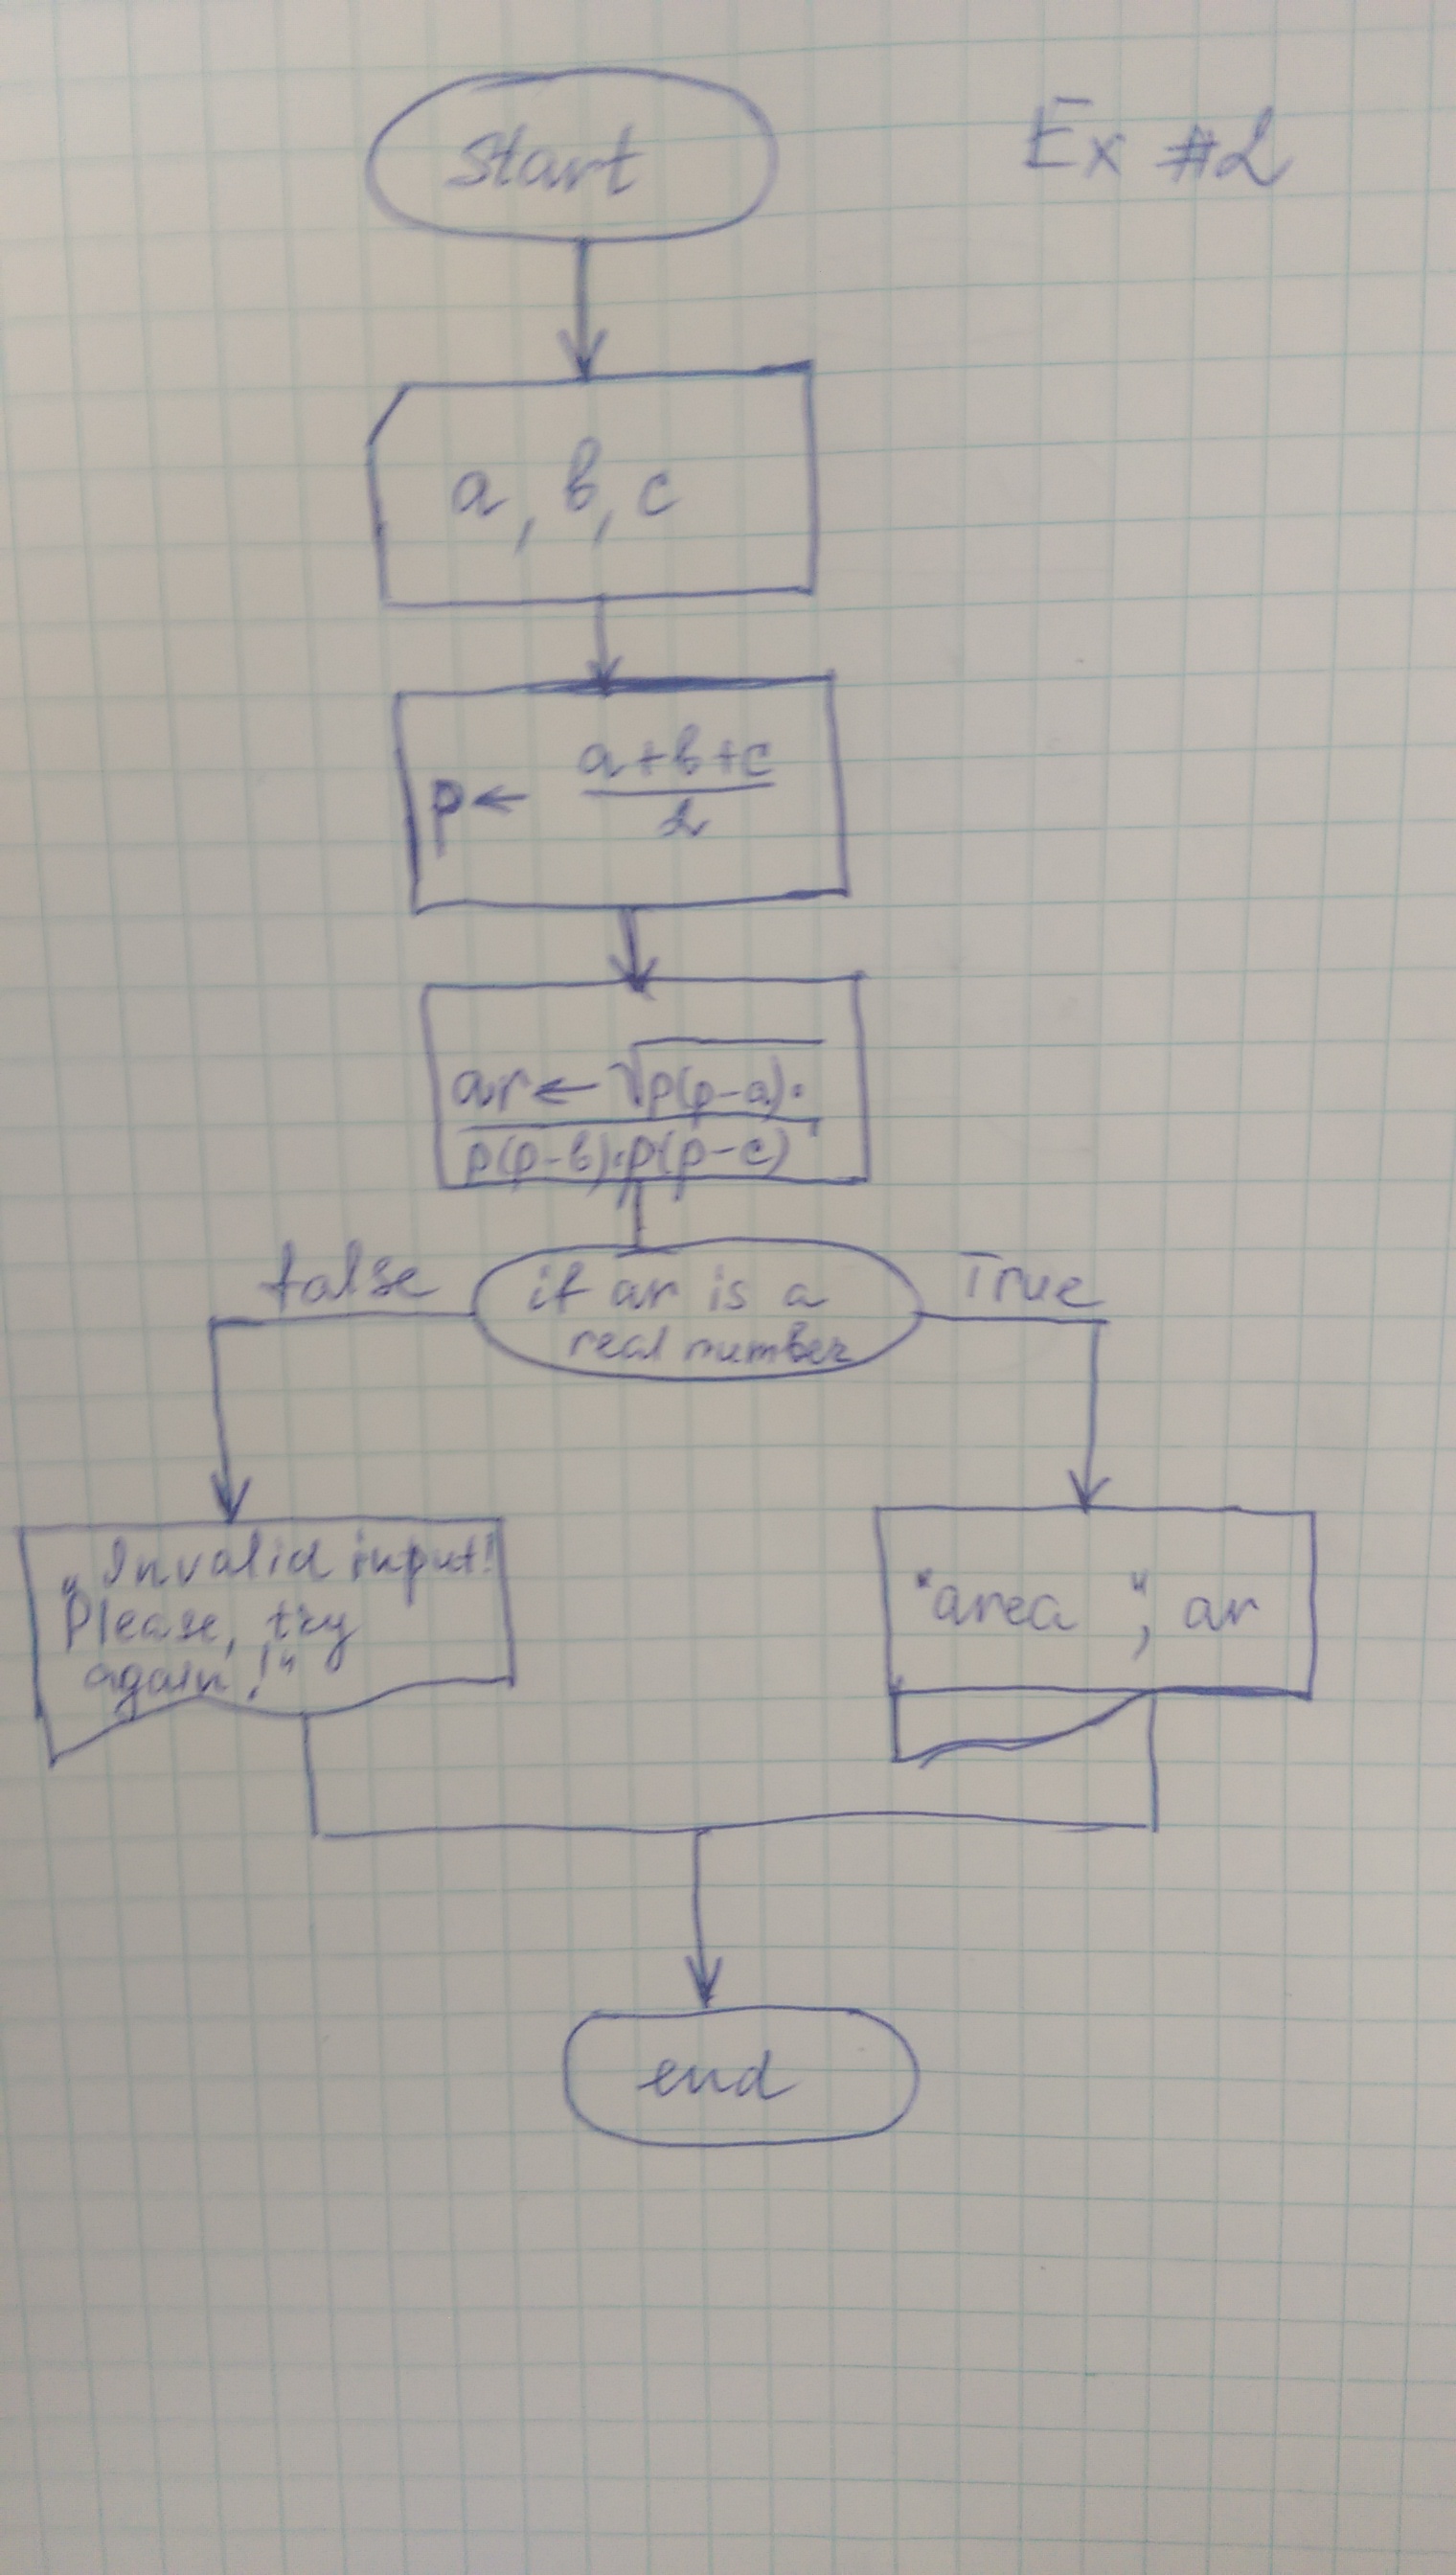 Start
Ex #2
a, b, c
p← a+b+c
2
ar ← √p(p-a)·
p(p-b)·p(p-c)
false
if ar is a
real number
True
„Invalid input!
Please, try
again!"
"area ", ar
end